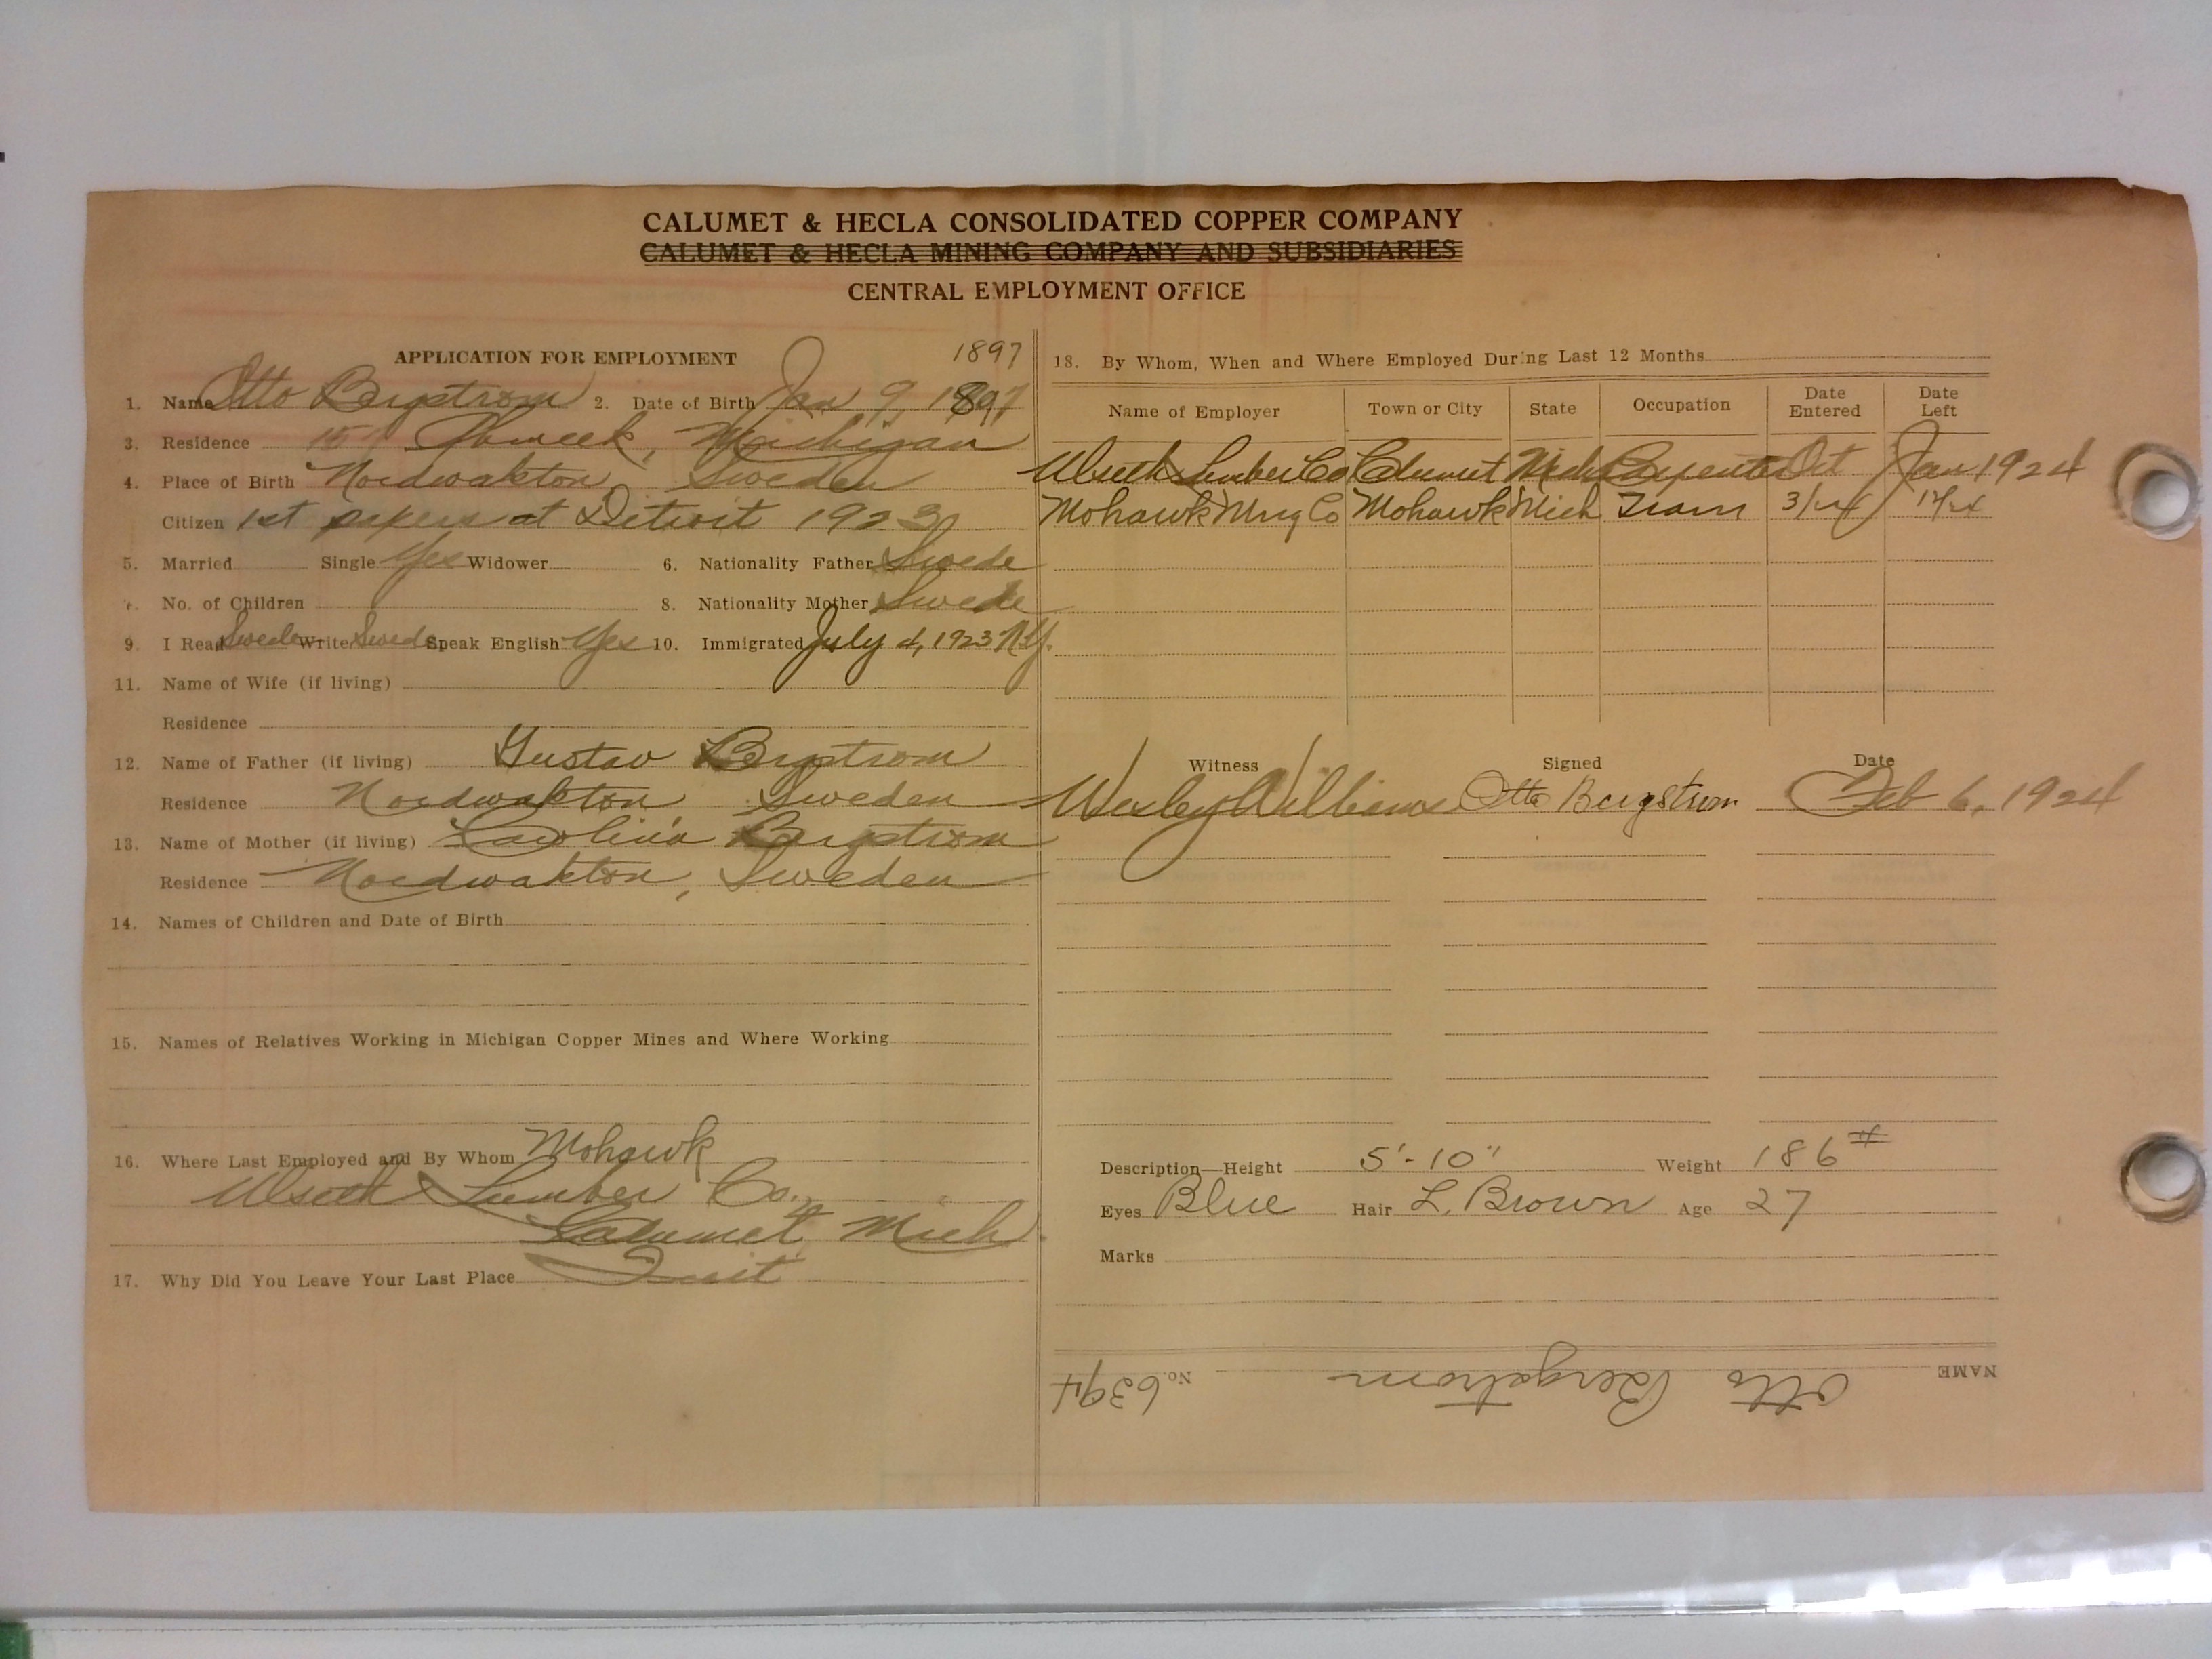 CALUMET & HECLA CONSOLIDATED COPPER COMPANY
CALUMET & HECLA MINING COMPANY AND SUBSIDIARIES
CENTRAL EMPLOYMENT OFFICE
APPLICATION FOR EMPLOYMENT 1897
1. Name Otto Bergstrom 2. Date of Birth Jan 9, 1897
3. Residence Ahmeek, Michigan
4. Place of Birth Nordwakton, Sweden
Citizen 1st papers at Detroit 1923
5. Married Single Yes Widower 6. Nationality Father Swede
No. of Children 8. Nationality Mother Swede
9 I Read Swede Write Swede Speak English Yes 10. Immigrated July 4, 1923 N.Y.
11. Name of Wife (if living)
Residence
12. Name of Father (if living) Gustav Bergstrom
Residence Nordwakton Sweden
13. Name of Mother (if living) Carolina Bergstrom
Residence Nordwakton, Sweden
14. Names of Children and Date of Birth
15. Names of Relatives Working in Michigan Copper Mines and Where Working
16. Where Last Employed and By Whom Mohawk
Ulseth Lumber Co.
Calumet, Mich.
17. Why Did You Leave Your Last Place Quit
18. By Whom, When and Where Employed During Last 12 Months
Name of Employer Town or City State Occupation Date Entered Date Left
Ulseth Lumber Co Calumet Mich Carpenter Oct Jan 1924
Mohawk Mng Co Mohawk Mich Tram 3/24
Witness Signed Date
Wesley Williams Otto Bergstrom Feb 6, 1924
Description—Height 5'-10" Weight 186#
Eyes Blue Hair L. Brown Age 27
Marks
NAME Otto Bergstrom No. 6394